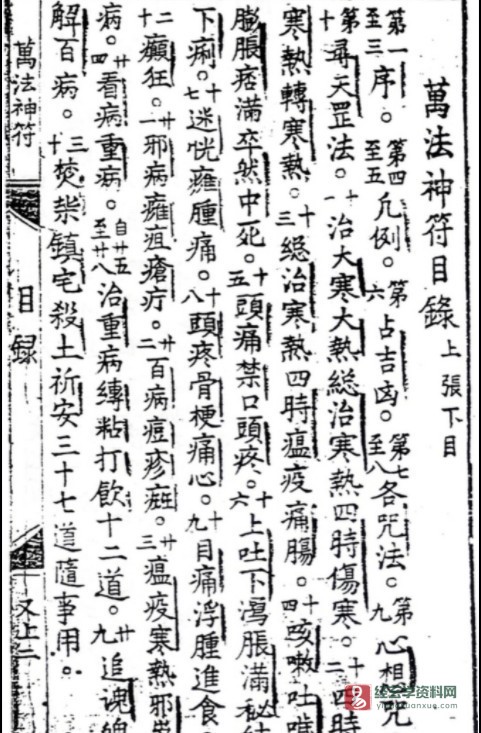 萬法神符目錄 上張下目
第一至三序。第四至五凢例。第六占吉凶。第七至八各咒法。第九心想咒
第十尋天罡法。十一治大寒大熱総治寒熱四時傷寒。十二四時
寒熱轉寒熱。十三総治寒熱四時瘟疫痛膓。十四咳嗽吐
膨脹痞滿卒然中死。十五頭痛禁口頭疼。十六上吐下瀉脹滿秘
下痢。十七迷恍癰腫痛。十八頭疼骨梗痛心。十九目痛浮腫進食
二十癲狂。廿一邪病癰疽瘡疔。廿二百病痘疹癍。廿三瘟疫寒熱邪
病。廿四看病重病。自廿五至廿八治重病縳粘打飲十二道。廿九追魂
解百病。三十焚柴鎮宅殺土祈安三十七道隨事用。
萬法神符
目録
又上二
易
学资料网